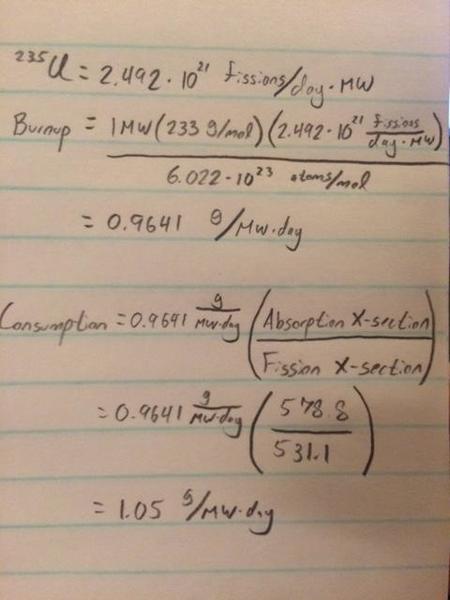 ²³⁵U = 2.492 · 10²¹ fissions/day · MW
Burnup = 1 MW (233 g/mol) (2.492 · 10²¹ fissions/day · MW)
6.022 · 10²³ atoms/mol
= 0.9641 g/MW · day
Consumption = 0.9641 g/MW · day (Absorption X-section
Fission X-section)
= 0.9641 g/MW · day (578.8
531.1)
= 1.05 g/MW · day